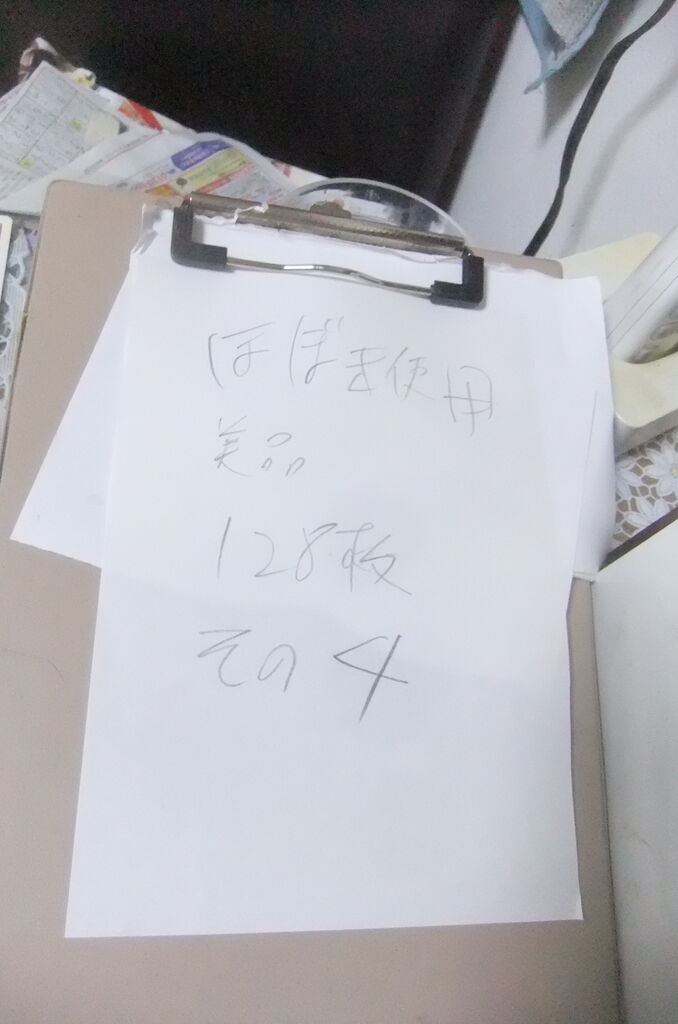 ほぼ未使用
美品
128枚
その4